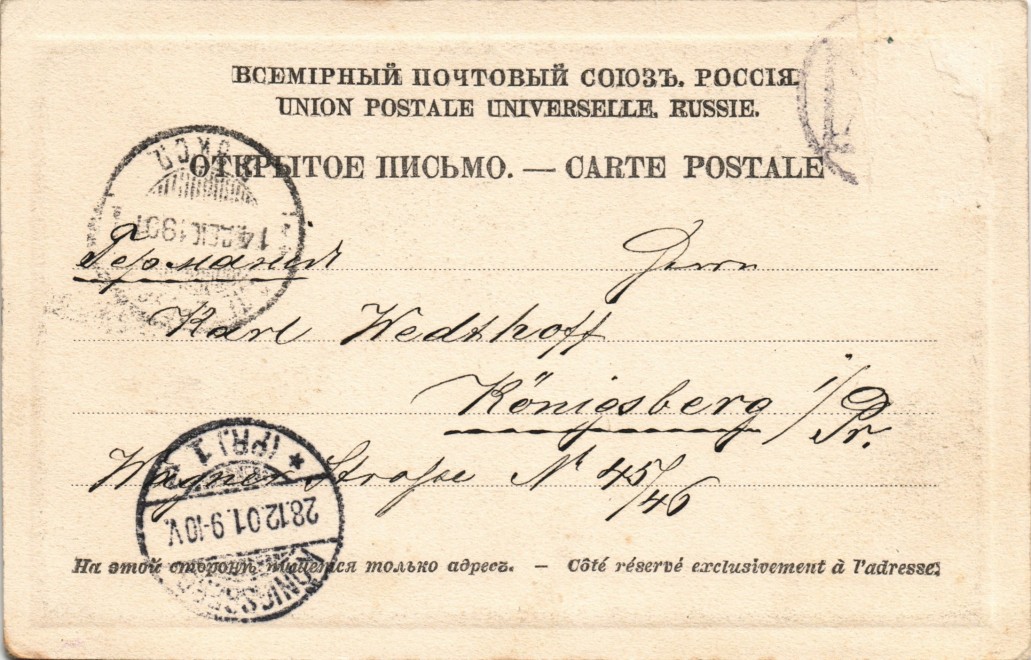 ВСЕМІРНЫЙ ПОЧТОВЫЙ СОЮЗЪ. РОССІЯ.
UNION POSTALE UNIVERSELLE. RUSSIE.
ОТКРЫТОЕ ПИСЬМО. — CARTE POSTALE
14 ДЕК. 1901
Германія
Herrn
Karl Wedthoff
Königsberg i/Pr.
Wagner Strasse № 45/46
KÖNIGSBERG (PR.) 1
28.12.01.9-10V.
На этой сторонѣ пишется только адресъ. — Côté réservé exclusivement à l'adresse.